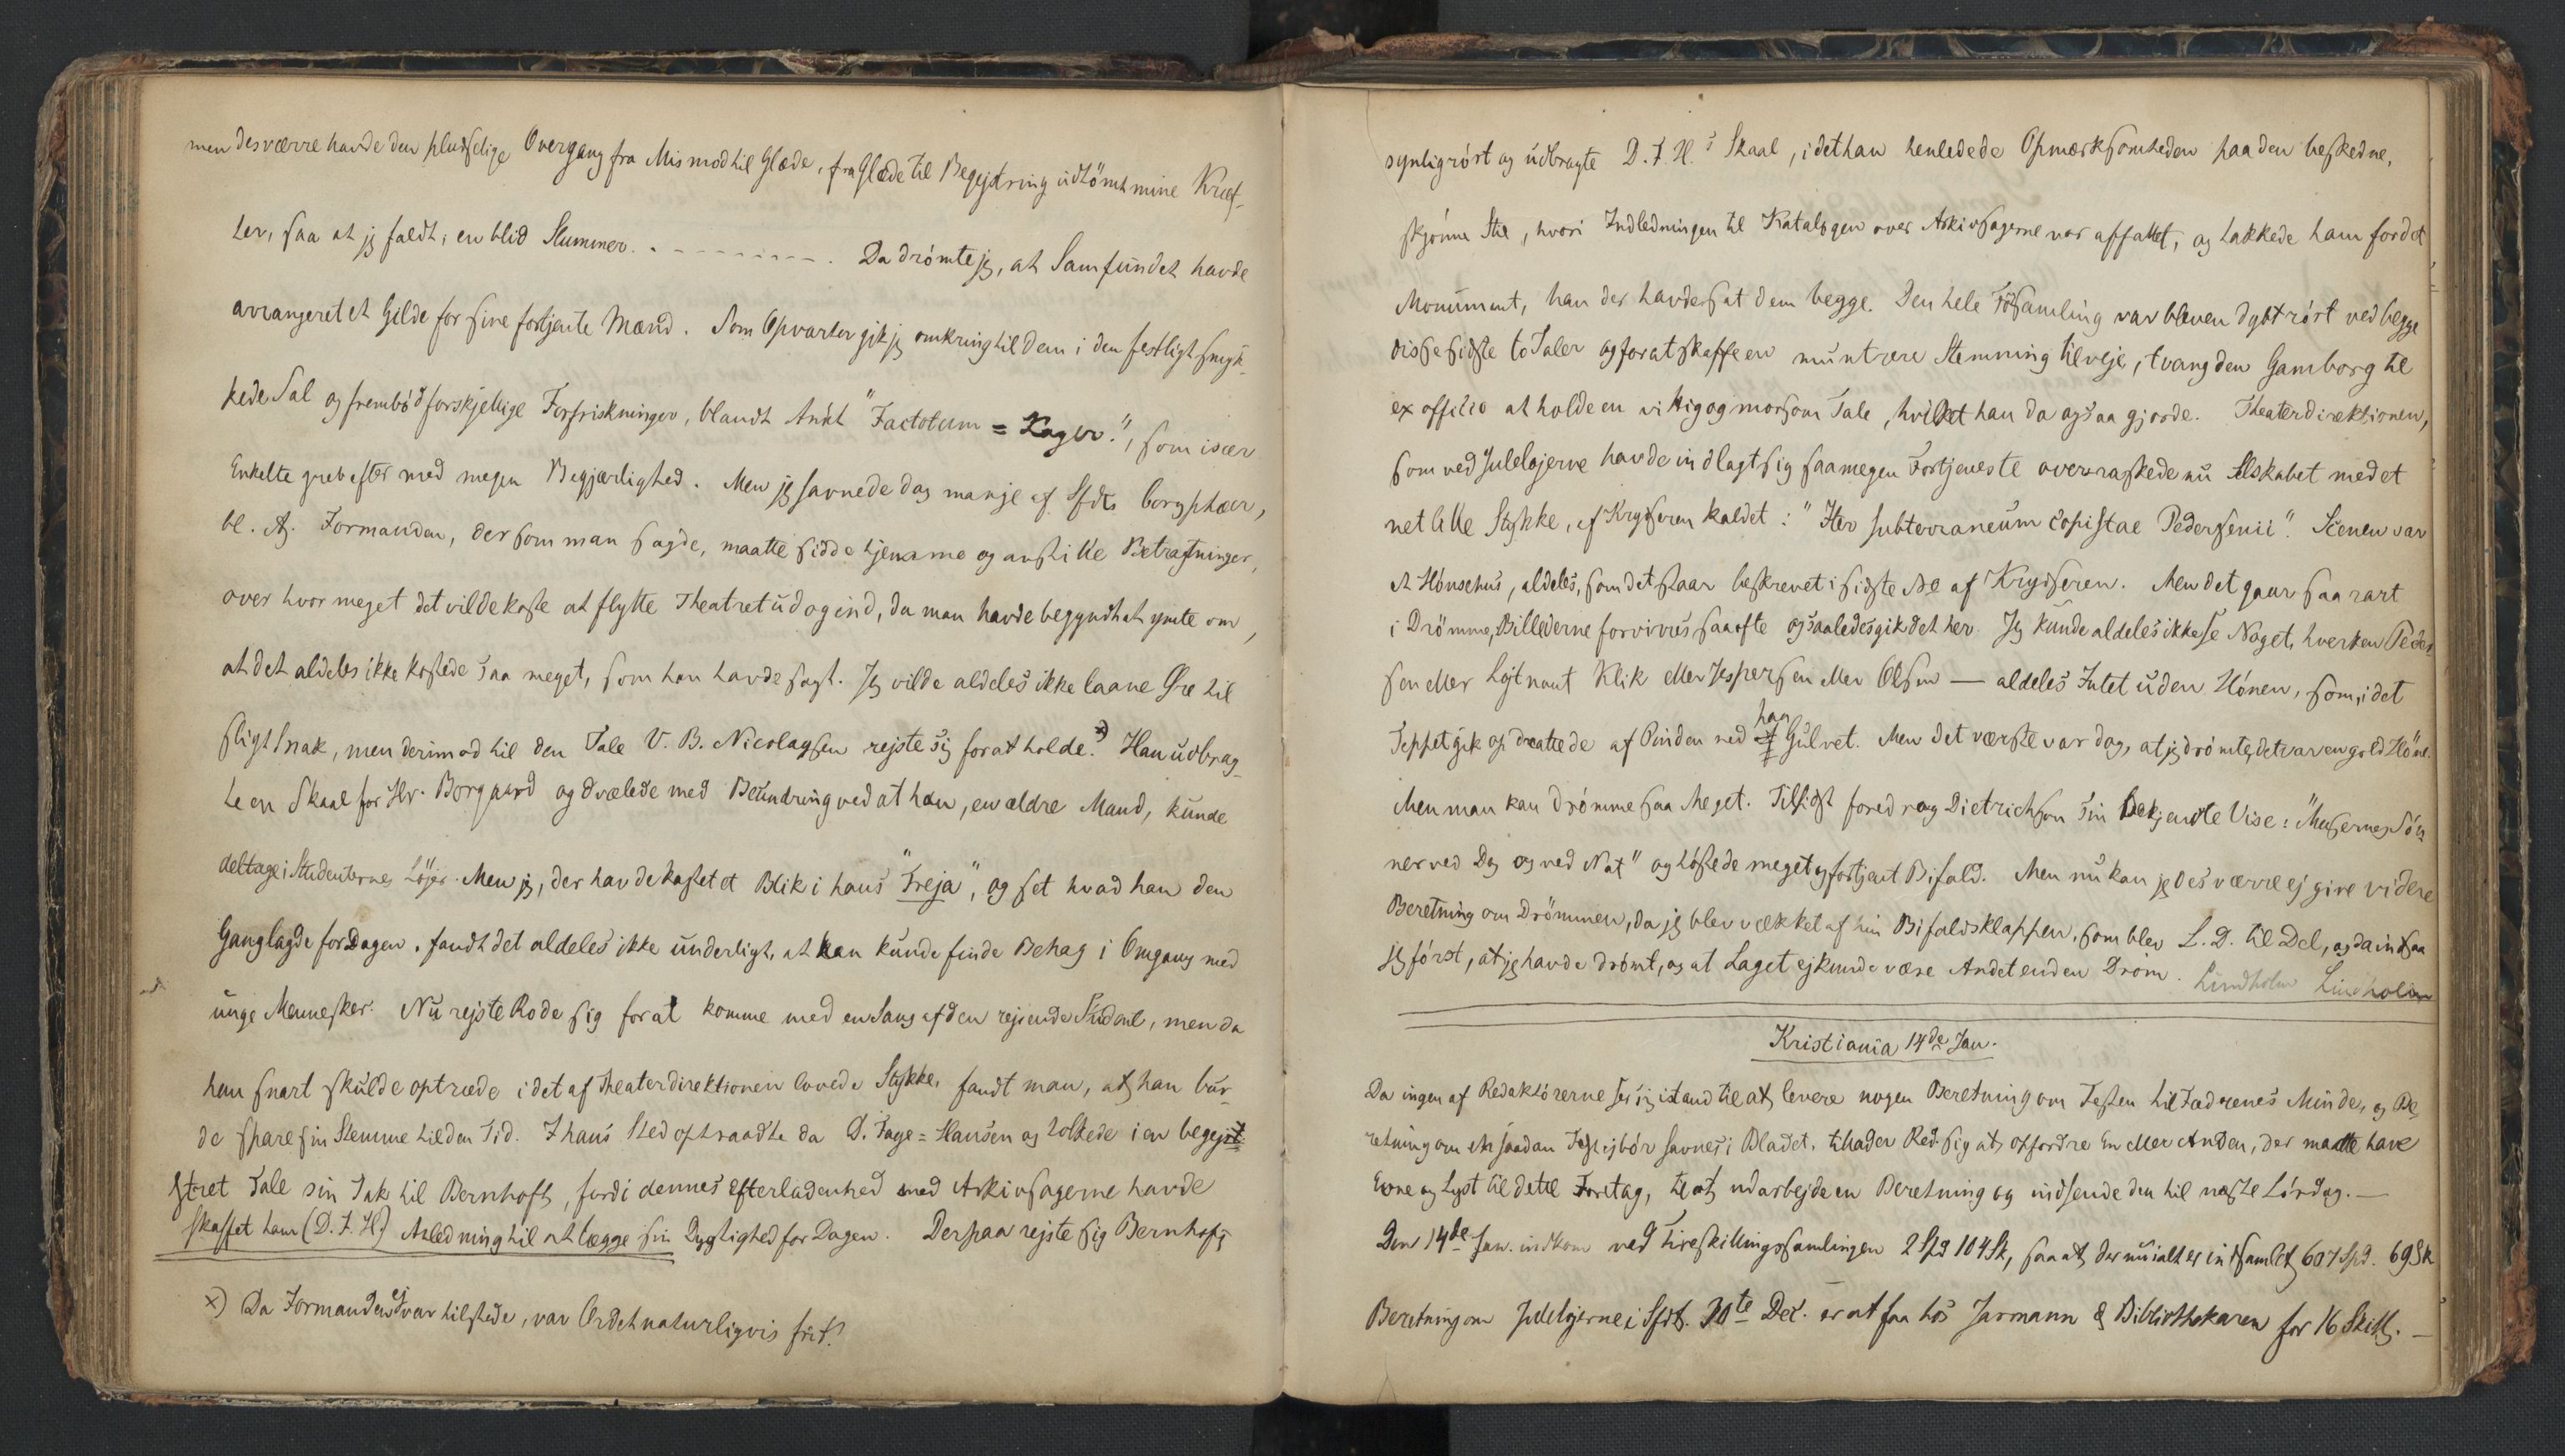 men desværre havde den pludselige Overgang fra Mismod til Glæde, fra Glæde til Begejstring udtömt mine Kræf-
ter, saa at jeg faldt i en blid Slummer. . - - - - - - - - . Da drömte jeg, at Samfundet havde
arrangeret et Gilde for sine fortjente Mænd. Som Opvarter gik jeg omkring til dem i den festligt smyk-
kede Sal og frembød forskjellige Forfriskninger, blandt Andet "Factotum = Kager", som især
Enkelte greb efter med megen Begjærlighed. Men jeg savnede dog mange af Sfdts coryphæer,
bl. A. Formanden, der som man sagde, maatte sidde hjemme og anstille Betragtninger,
over hvor meget det vilde koste at flytte Theatret ud og ind, da man havde begyndt at ymte om,
at det aldeles ikke kostede saa meget, som han havde sagt. Jeg vilde aldeles ikke laane Øre til
sligt Snak, men derimod til den Tale V. B. Nicolaysen rejste sig for at holde. x) Han udbrag-
te en Skaal for Hr. Borgaard og dvælede med Beundring ved at han, en ældre Mand, kunde
deltage i Studenternes Löjer. Men jeg, der havde kastet et Blik i hans "Freja", og set hvad han den
Gang lagde for Dagen, fandt det aldeles ikke underligt, at han kunde finde Behag i Omgang med
unge Mennesker. Nu rejste Rode sig for at komme med en Sang af den rejsende Student, men da
han snart skulde optræde i det af Theaterdirektionen lovede Stykke, fandt man, at han bur-
de spare sin Stemme til den Tid. I hans Sted optraadte da D. Faye = Hansen og tolkede i en begejst-
stret Tale sin Tak til Bernhoft, fordi dennes Efterladenhed med Arkivsagerne havde
skaffet ham (D. F. H.) Anledning til at lægge sin Dygtighed for Dagen. Derpaa rejste sig Bernhoft
x) Da Formanden ej var tilstede, var Ordet naturligvis frit!
synlig rørt og udbragte D. F. H.s Skaal, idet han henledede Opmærksomheden paa den beskedne,
skjønne Stil, hvori Indledningen til Katalogen over Arkivsagerne var affattet, og takkede ham for det
Monument, han der havde sat dem begge. Den hele Forsamling var bleven dybt rørt ved begge
disse sidste to Taler og for at skaffe en muntrere Stemning tilveje, tvang den Gamborg til
ex officio at holde en vittig og morsom Tale, hvilket han da ogsaa gjorde. Theaterdirektionen,
som ved Julelöjerne havde indlagt sig saa megen Fortjeneste overraskede nu Selskabet med et
net lille Stykke, af Krydseren kaldet: "Iter subterraneum copistae Pedersenii". Scenen var
et Hónsehus, aldeles, som det staar beskrevet i sidste No af Krydseren. Men det gaar saa rart
i Drömme, Billederne forvirres saa ofte og saaledes gik det her. Jeg kunde aldeles ikke se Noget, hverken Peder-
sen eller Löjtnant Klik eller Jespersen eller Olsen — aldeles Intet uden Hónen, som, idet
Teppet gik op drattede af Pinden ned paa Gulvet. Men det værste var dog, at jeg drömte, det var en gold Höne.
Men man kan drömme saa Meget. Tilsidst foredrog Dietrichson sin bekjendte Vise: "Musernes Són
ner ved Dag og ved Nat" og höstede meget og fortjent Bifald. Men nu kan jeg desværre ej give videre
Beretning om Drömmen, da jeg blev vækket af hin Bifaldsklappen, som blev L. D. til Del, og da indsaa
jeg først, at jeg havde drömt, og at Laget ej kunde være Andet end en Dröm. Lindholm Lindholm
Kristiania 14de Jan.
Da ingen af Redaktörerne ser sig istand til at levere nogen Beretning om Festen til Fædrenes Minde, og Be
retning om en saadan Fest ej bör savnes i Bladet, tillader Red. sig at opfordre En eller Anden, der maatte have
Evne og Lyst til dette Foretag, til at udarbejde en Beretning og indsende den til næste Lórdag. —
Den 14de Jan. indkom ved Fireskillingssamlingen 2 Spd 104 Sk, saa at der nu ialt er indsamlet 607 Spd. 69 Sk
Beretning om Julelöjerne i Sfdt. 30te Dec. er at faa hos Jarmann & Bibliothekaren for 16 Skill. —